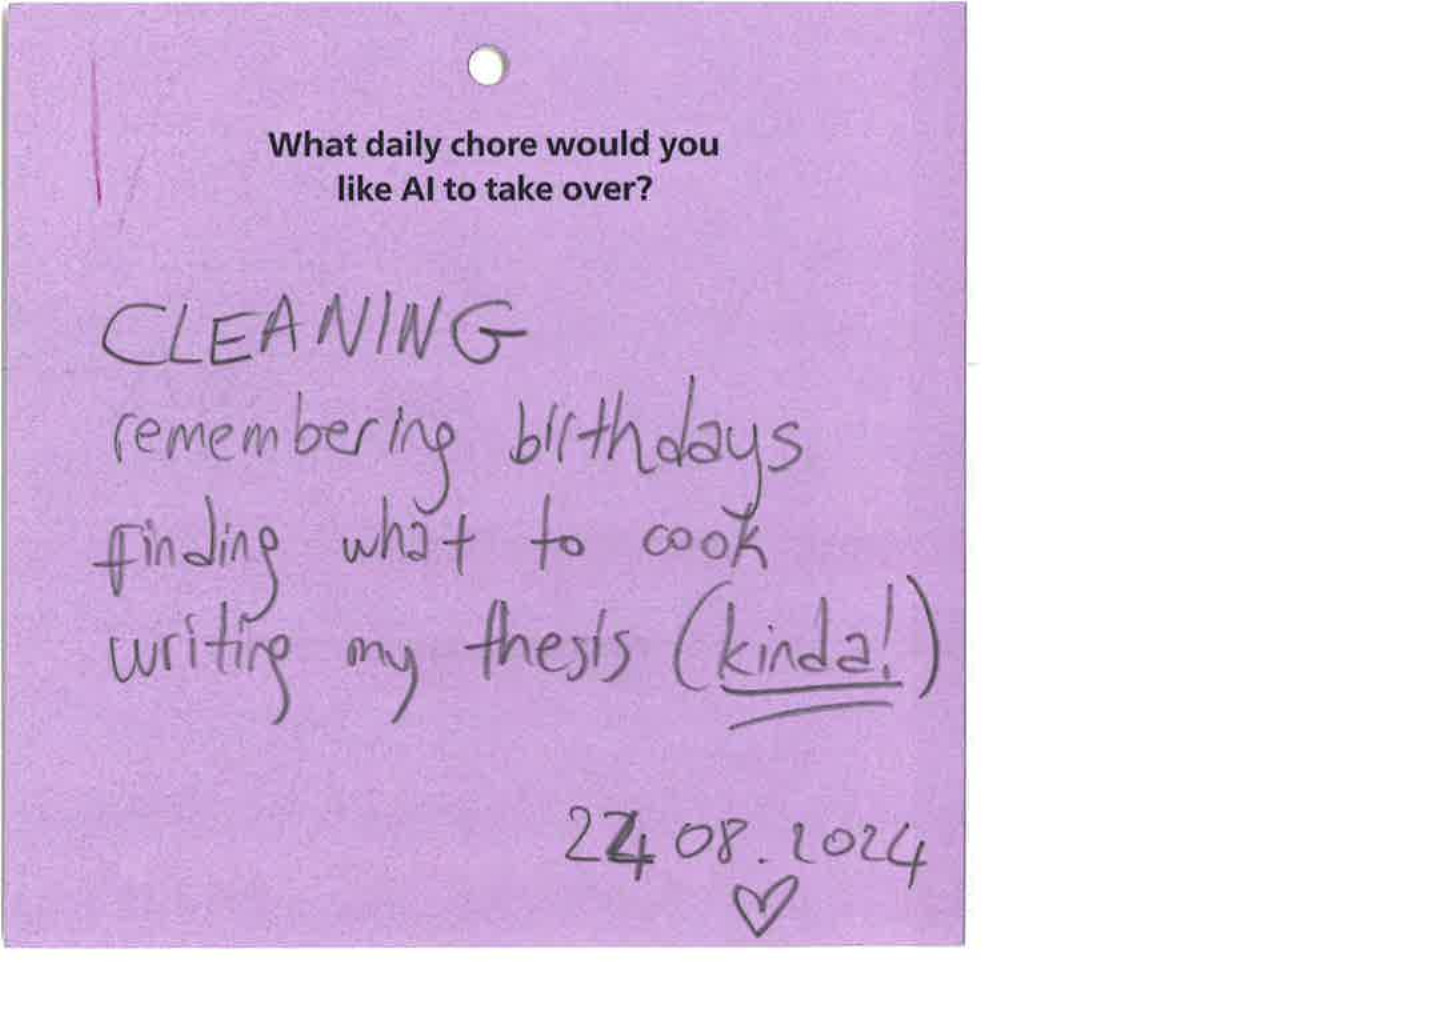 What daily chore would you
like AI to take over?
CLEANING
remembering birthdays
finding what to cook
writing my thesis (kinda!)
24 08.2024